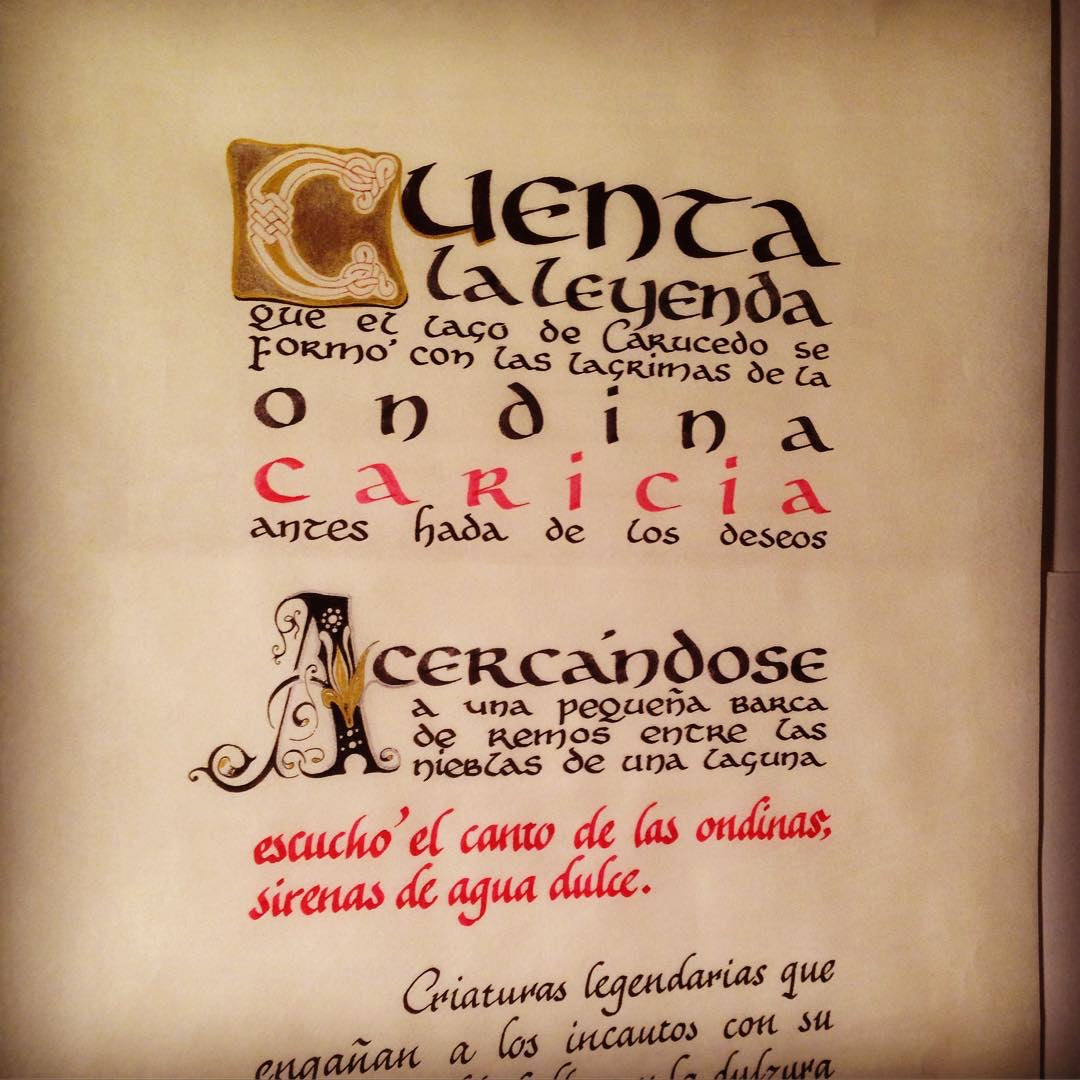 Cuenta
la leyenda
que el lago de Carucedo se
formó con las lagrimas de la
ondina
caricia
antes hada de los deseos
Acercándose
a una pequeña barca
de remos entre las
nieblas de una laguna
escuchó el canto de las ondinas,
sirenas de agua dulce.
Criaturas legendarias que
engañan a los incautos con su
la dulzura